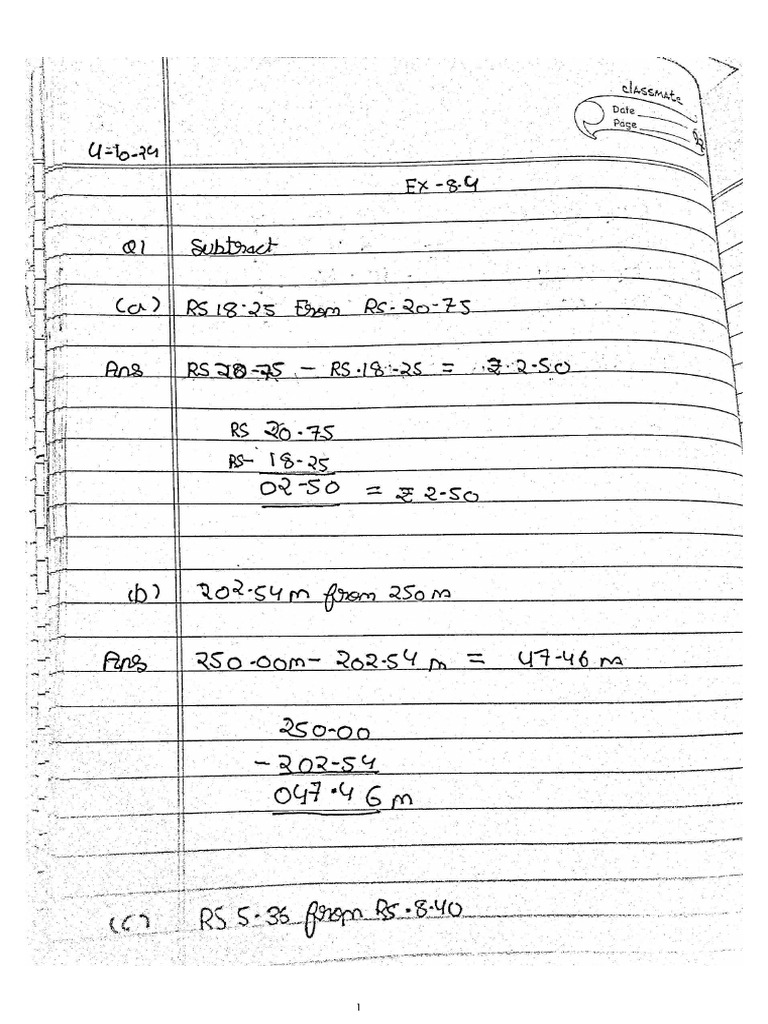 classmate
Date
Page
4-10-24
Ex - 8.4
Q1 Subtract
(a) RS 18.25 From RS- 20-75
Ans RS 20-75 - RS.18-25 = ₹ 2-50
RS 20.75
RS- 18-25
02-50 = ₹ 2-50
(b) 202-54 m from 250 m
Ans 250.00m - 202-54 m = 47-46 m
250-00
- 202-54
047.46 m
(c) RS 5.36 from RS.8.40
1